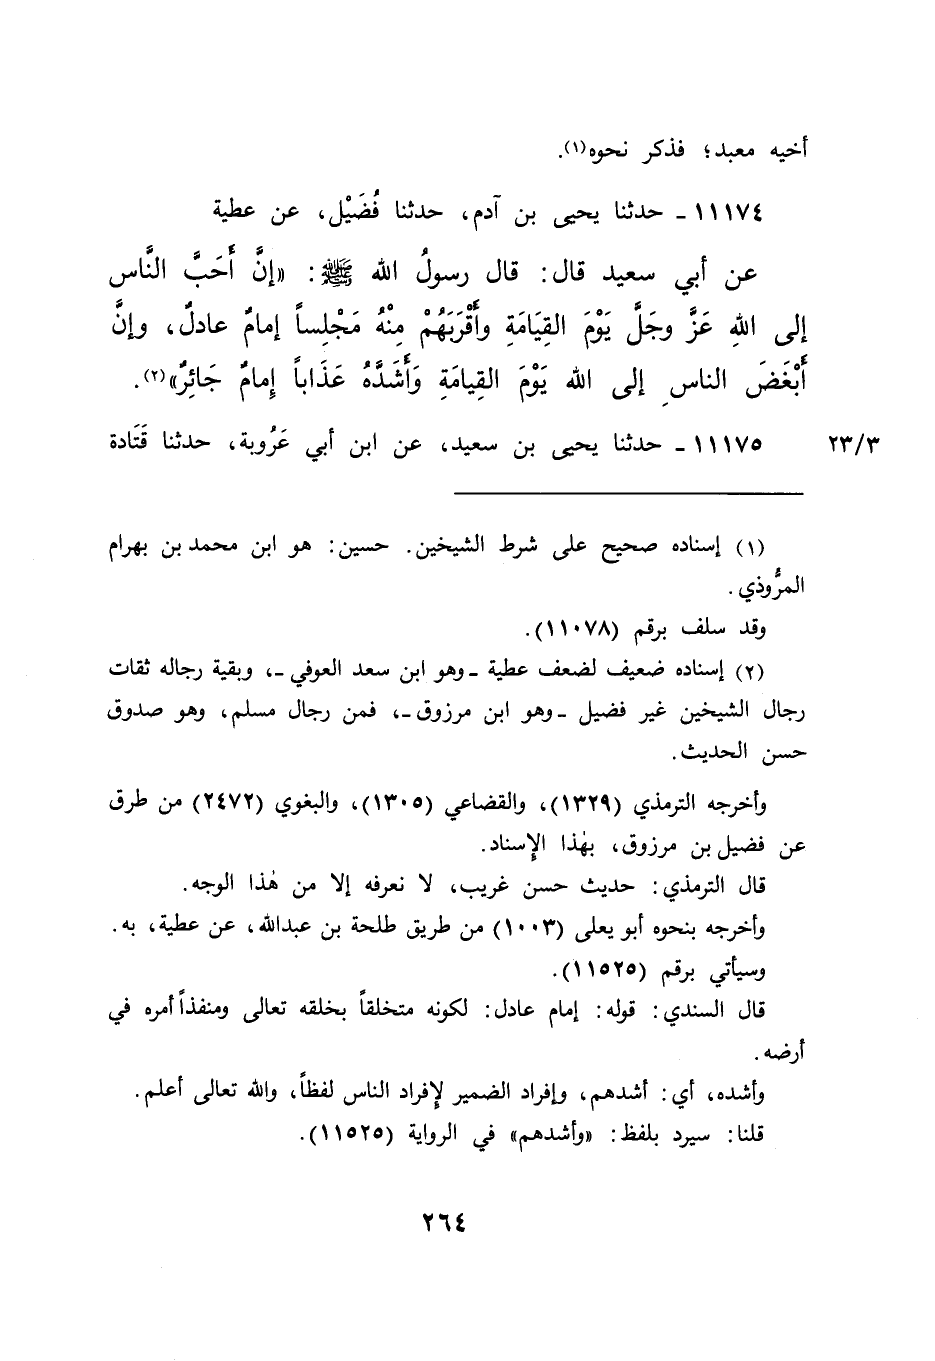 أخيه معبد؛ فذكر نحوه(١).
١١١٧٤ ـ حدثنا يحيى بن آدم، حدثنا فُضَيْل، عن عطية
عن أبي سعيد قال: قال رسولُ الله ﷺ: «إنَّ أَحَبَّ النَّاس
إلى اللهِ عَزَّ وجَلَّ يَوْمَ القِيَامَةِ وأَقْرَبَهُمْ مِنْهُ مَجْلِساً إمامٌ عادلٌ، وإنَّ
أَبْغَضَ الناسِ إلى الله يَوْمَ القِيامَةِ وَأَشَدَّهُ عَذَاباً إِمامٌ جَائِرٌ»(٢).
١١١٧٥ ـ حدثنا يحيى بن سعيد، عن ابن أبي عَرُوبة، حدثنا قَتَادة
٢٣/٣
(١) إسناده صحيح على شرط الشيخين. حسين: هو ابن محمد بن بهرام
المرُّوذي.
وقد سلف برقم (١١٠٧٨).
(٢) إسناده ضعيف لضعف عطية ـ وهو ابن سعد العوفي ـ، وبقية رجاله ثقات
رجال الشيخين غير فضيل ـ وهو ابن مرزوق ـ، فمن رجال مسلم، وهو صدوق
حسن الحديث.
وأخرجه الترمذي (١٣٢٩)، والقضاعي (١٣٠٥)، والبغوي (٢٤٧٢) من طرق
عن فضيل بن مرزوق، بهٰذا الإسناد.
قال الترمذي: حديث حسن غريب، لا نعرفه إلا من هٰذا الوجه.
وأخرجه بنحوه أبو يعلى (١٠٠٣) من طريق طلحة بن عبدالله، عن عطية، به.
وسيأتي برقم (١١٥٢٥).
قال السندي: قوله: إمام عادل: لكونه متخلقاً بخلقه تعالى ومنفذاً أمره في
أرضه.
وأشده، أي: أشدهم، وإفراد الضمير لإفراد الناس لفظاً، والله تعالى أعلم.
قلنا: سيرد بلفظ: «وأشدهم» في الرواية (١١٥٢٥).
٢٦٤